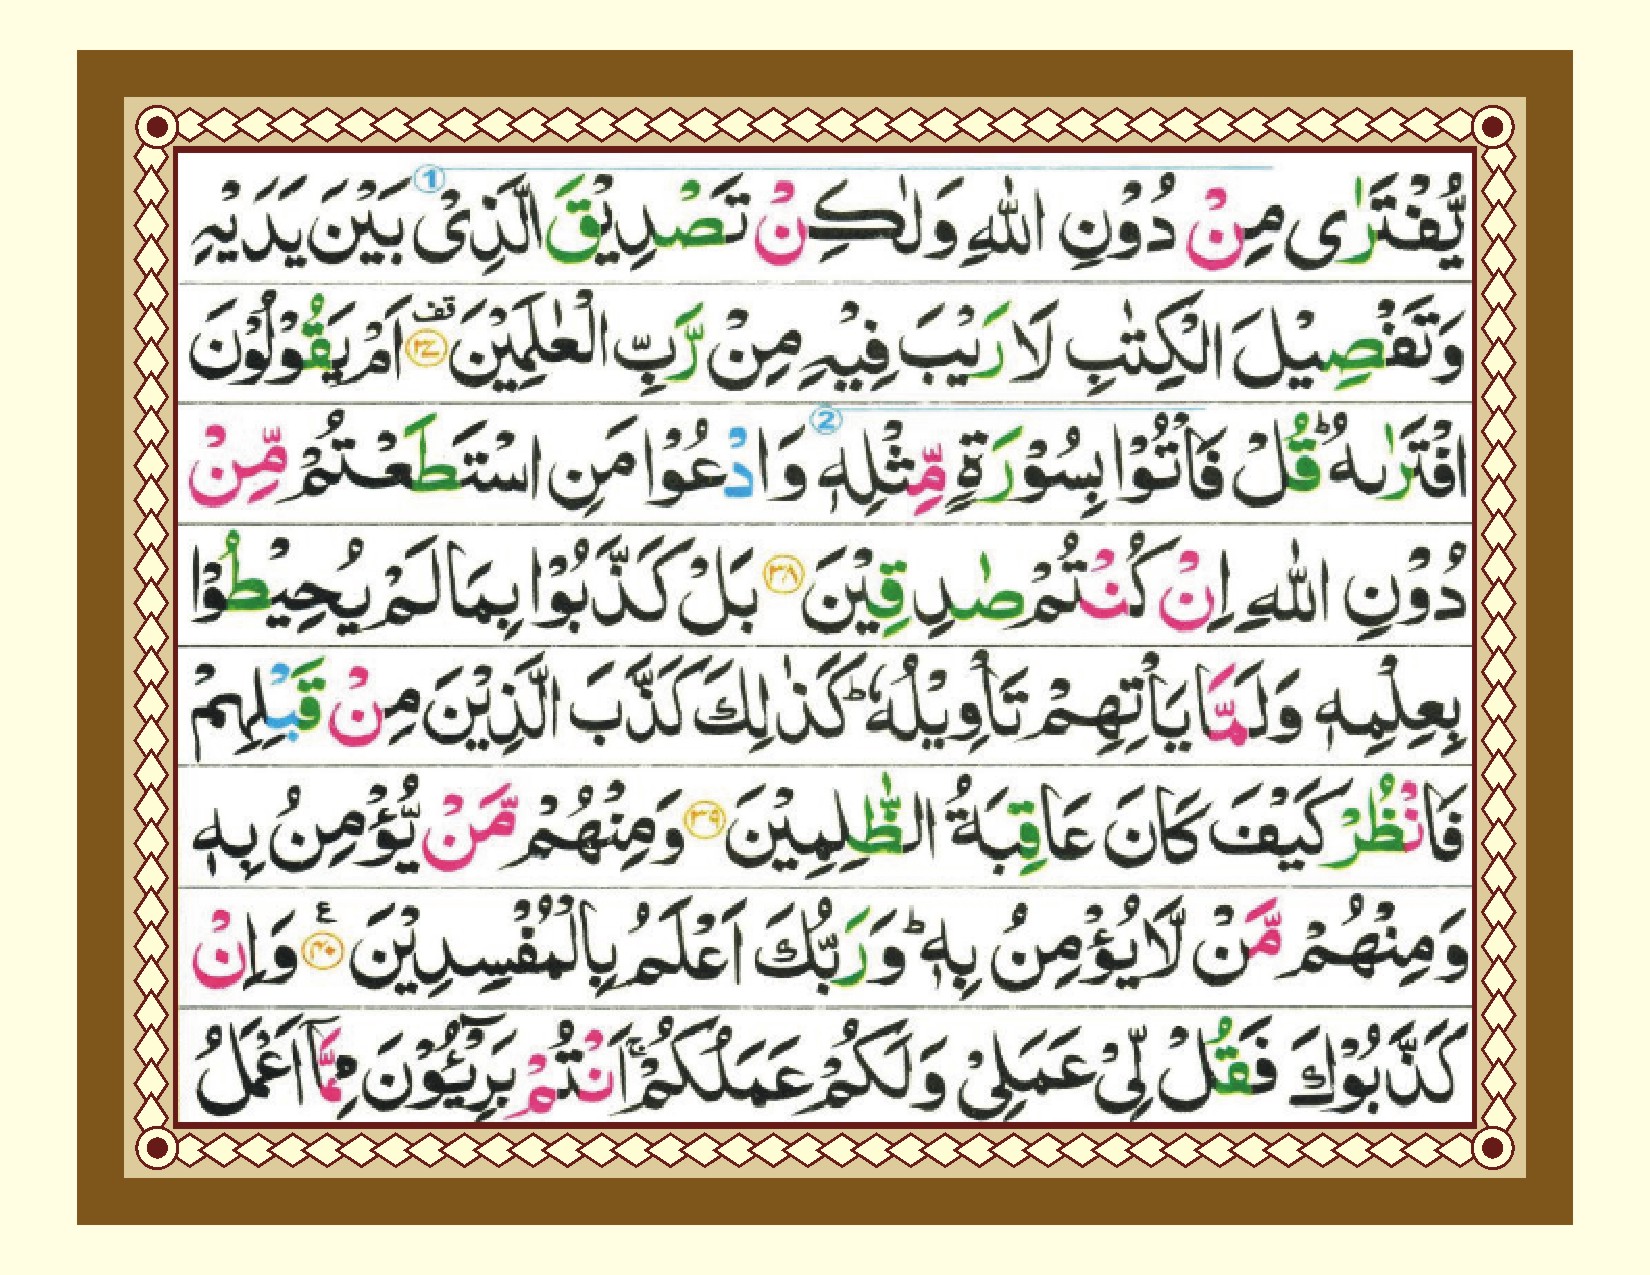 يُّفْتَرٰى مِنْ دُوْنِ اللّٰهِ وَلٰكِنْ تَصْدِيْقَ الَّذِىْ بَيْنَ يَدَيْهِ 1
وَتَفْصِيْلَ الْكِتٰبِ لَا رَيْبَ فِيْهِ مِنْ رَّبِّ الْعٰلَمِيْنَ قف ۳۷ اَمْ يَقُوْلُوْنَ
افْتَرٰىهُ ؕ قُلْ فَاْتُوْا بِسُوْرَةٍ مِّثْلِهٖ 2 وَادْعُوْا مَنِ اسْتَطَعْتُمْ مِّنْ
دُوْنِ اللّٰهِ اِنْ كُنْتُمْ صٰدِقِيْنَ ۳۸ بَلْ كَذَّبُوْا بِمَا لَمْ يُحِيْطُوْا
بِعِلْمِهٖ وَلَمَّا يَاْتِهِمْ تَاْوِيْلُهٗ ؕ كَذٰلِكَ كَذَّبَ الَّذِيْنَ مِنْ قَبْلِهِمْ
فَانْظُرْ كَيْفَ كَانَ عَاقِبَةُ الظّٰلِمِيْنَ ۳۹ وَمِنْهُمْ مَّنْ يُّؤْمِنُ بِهٖ
وَمِنْهُمْ مَّنْ لَّا يُؤْمِنُ بِهٖ ؕ وَرَبُّكَ اَعْلَمُ بِالْمُفْسِدِيْنَ ع ۴۰ وَاِنْ
كَذَّبُوْكَ فَقُلْ لِّىْ عَمَلِىْ وَلَكُمْ عَمَلُكُمْ ۚ اَنْتُمْ بَرِيْٓئُوْنَ مِمَّاۤ اَعْمَلُ